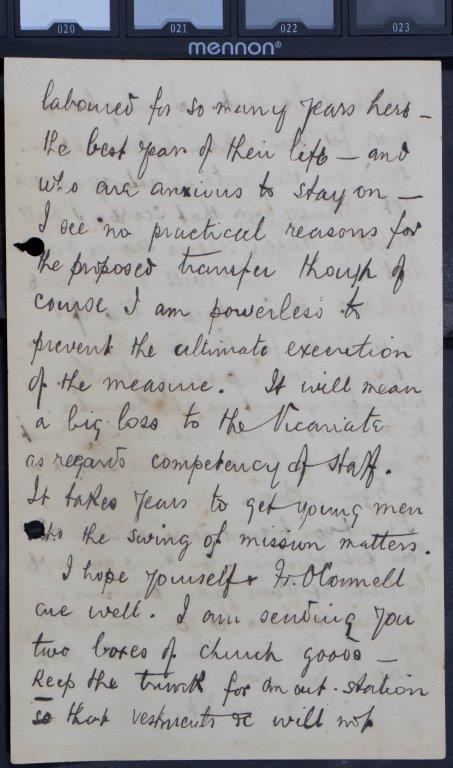 020 021 022 023
mennon®
laboured for so many years here —
the best years of their life — and
who are anxious to stay on —
I see no practical reasons for
the proposed transfer though of
course I am powerless to
prevent the ultimate execution
of the measure. It will mean
a big loss to the Vicariate
as regards competency of staff.
It takes years to get young men
into the swing of mission matters.
I hope yourself & Fr. O'Connell
are well. I am sending you
two boxes of church goods —
Keep the trunk for an out-station
so that vestments &c will not